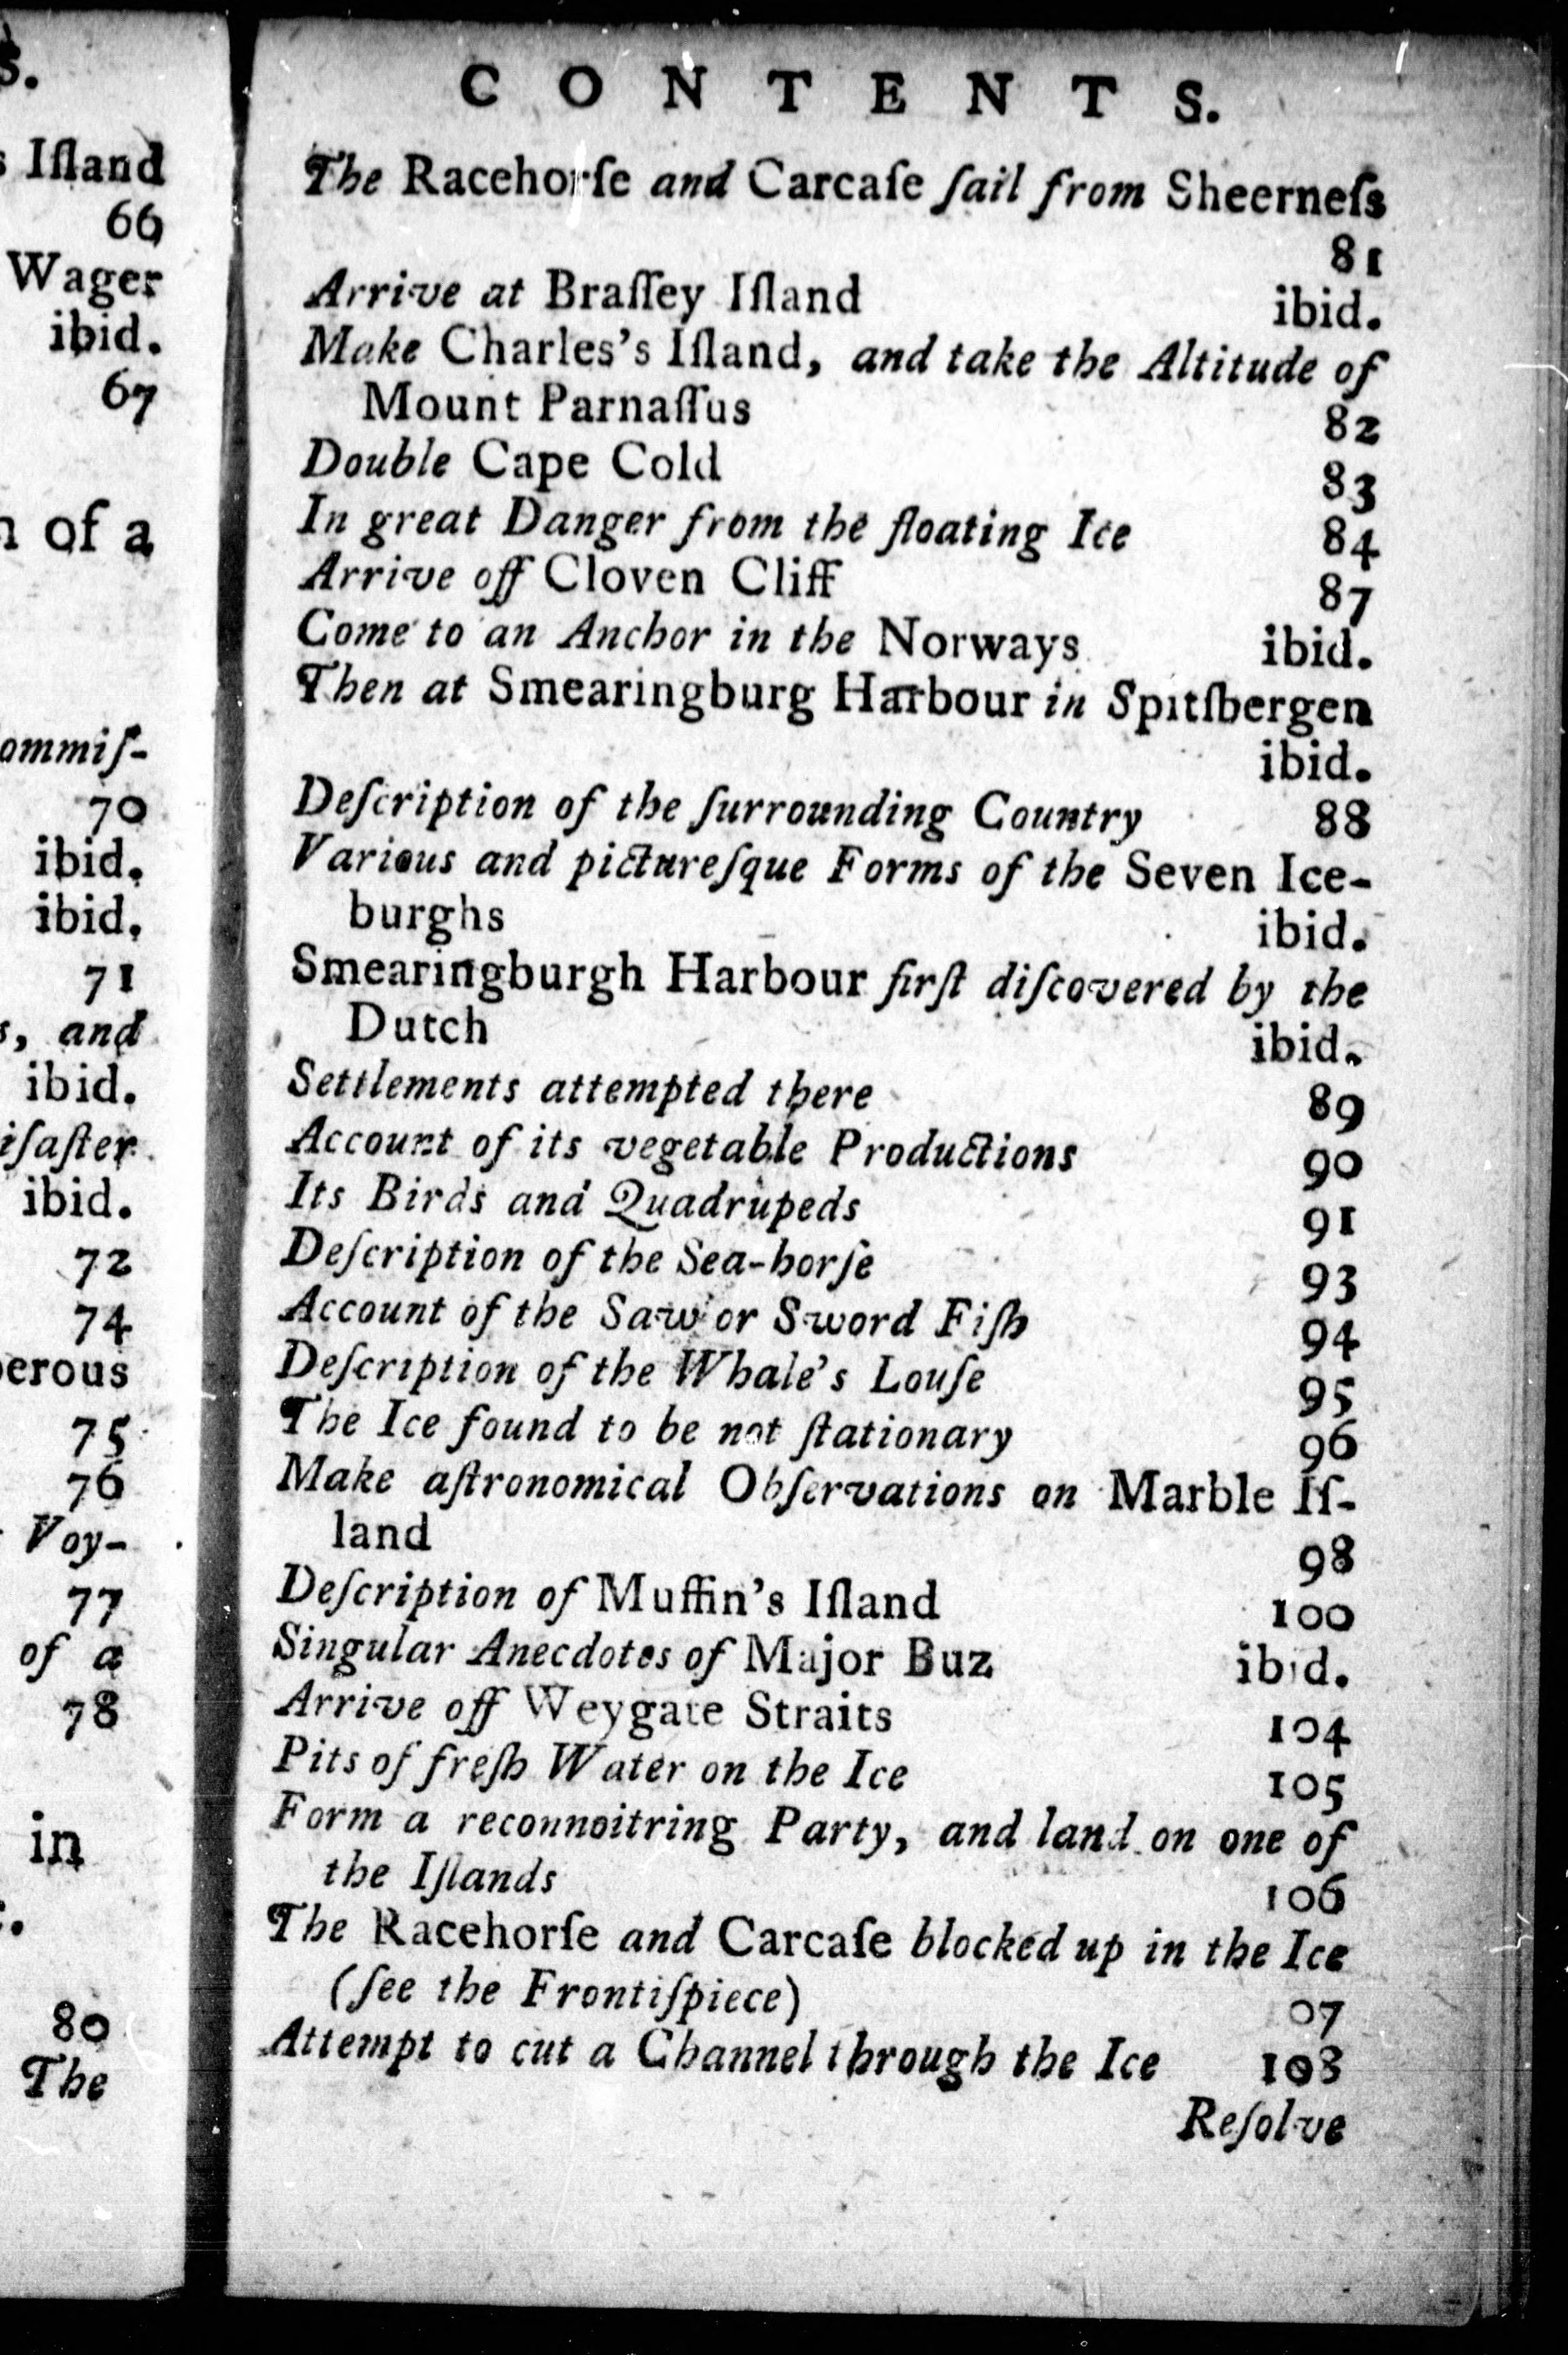 S.
s Iſland
66
Wager
ibid.
67
n of a
ommiſ-
70
ibid.
ibid.
71
s, and
ibid.
iſaſter
ibid.
72
74
perous
75
76
Voy-
77
of a
78
in
80
The
CONTENTS.
The Racehorſe and Carcaſe ſail from Sheerneſs
81
Arrive at Braſſey Iſland ibid.
Make Charles's Iſland, and take the Altitude of
Mount Parnaſſus 82
Double Cape Cold 83
In great Danger from the floating Ice 84
Arrive off Cloven Cliff 87
Come to an Anchor in the Norways ibid.
Then at Smearingburg Harbour in Spitſbergen
ibid.
Deſcription of the ſurrounding Country 88
Various and pictureſque Forms of the Seven Ice-
burghs ibid.
Smearingburgh Harbour firſt diſcovered by the
Dutch ibid.
Settlements attempted there 89
Account of its vegetable Productions 90
Its Birds and Quadrupeds 91
Deſcription of the Sea-horſe 93
Account of the Saw or Sword Fiſh 94
Deſcription of the Whale's Louſe 95
The Ice found to be not ſtationary 96
Make aſtronomical Obſervations on Marble Iſ-
land 98
Deſcription of Muffin's Iſland 100
Singular Anecdotes of Major Buz ibid.
Arrive off Weygate Straits 104
Pits of freſh Water on the Ice 105
Form a reconnoitring Party, and land on one of
the Iſlands 106
The Racehorſe and Carcaſe blocked up in the Ice
(ſee the Frontiſpiece) 07
Attempt to cut a Channel through the Ice 108
Reſolve